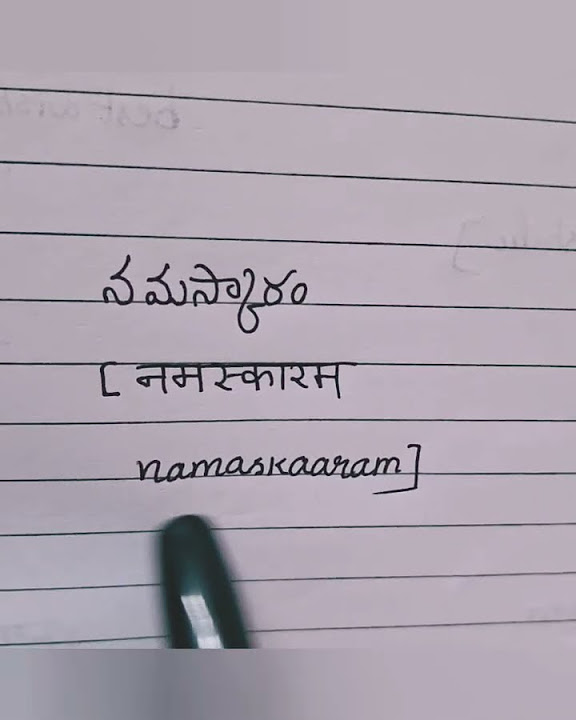 నమస్కారం
[ नमस्कारम
namaskaaram]